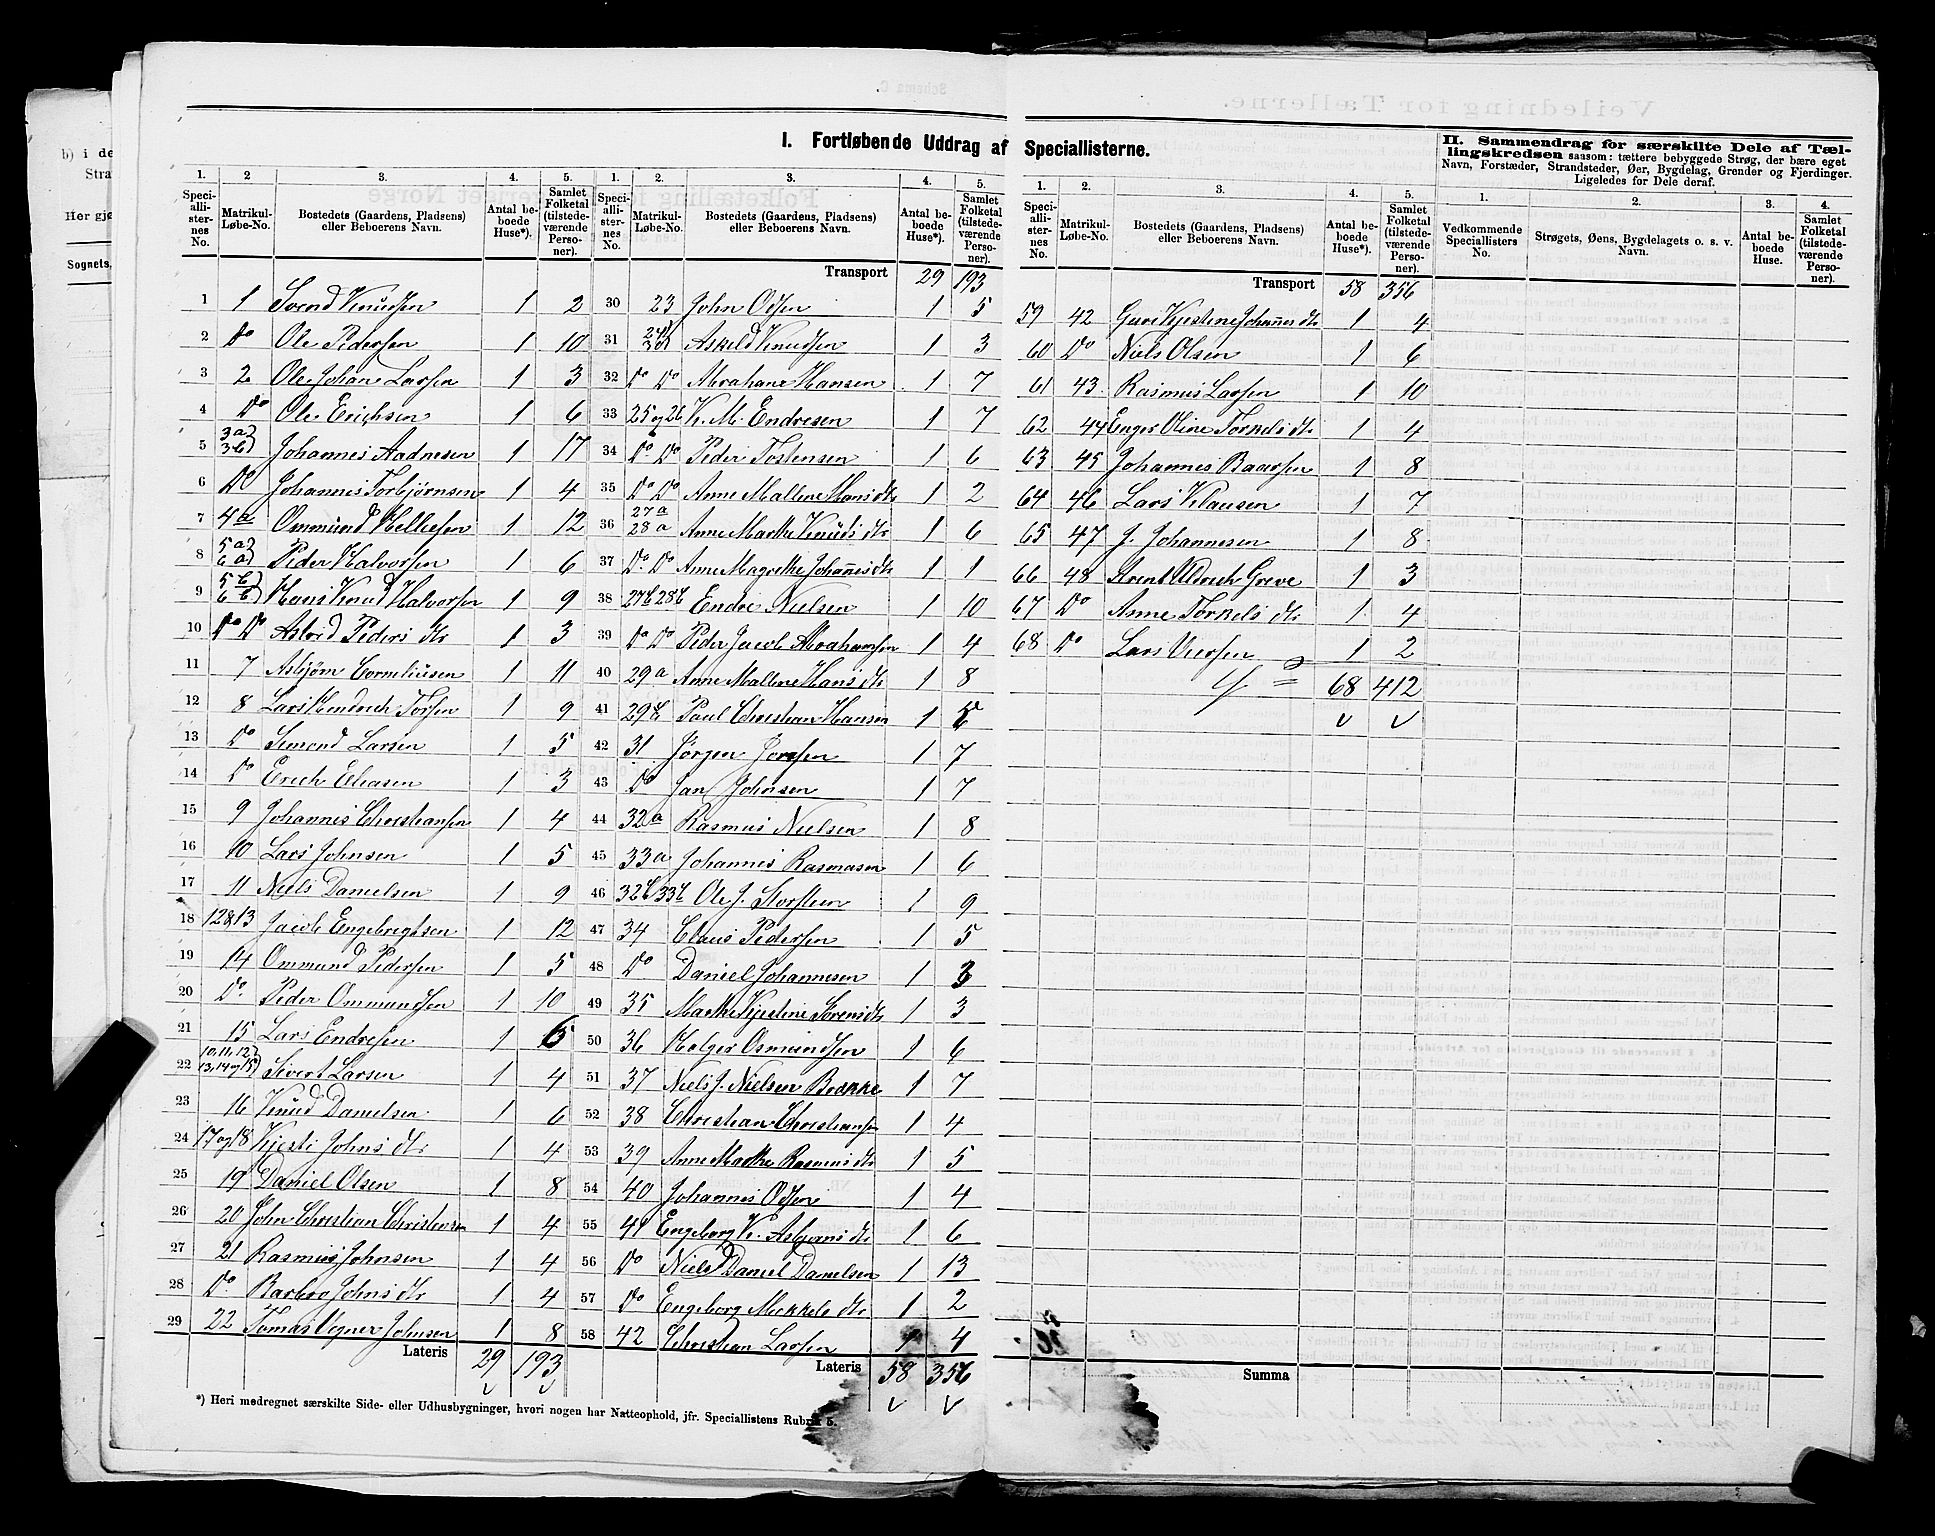 b) i de
Stra
Her gjø
Sognets,
I. Fortløbende Uddrag af Speciallisterne.
II. Sammendrag for særskilte Dele af Tæl-
lingskredsen saasom: tættere bebyggede Strøg, der bære eget
Navn, Forstæder, Strandsteder, Øer, Bygdelag, Grender og Fjerdinger.
Ligeledes for Dele deraf.
1. 2 3. 4. 5. 1. 2. 3. 4. 5. 1. 2. 3. 4. 5. 1. 2. 3. 4.
Speci-allister-nes No. Matrikul-Løbe-No. Bostedets (Gaardens, Pladsens) eller Beboerens Navn. Antal be-boede Huse*). Samlet Folketal (tilstede-værende Perso-ner).
Speci-allister-nes No. Matrikul-Løbe-No. Bostedets (Gaardens, Pladsens) eller Beboerens Navn. Antal be-boede Huse*). Samlet Folketal (tilstede-værende Perso-ner).
Speci-allister-nes No. Matrikul-Løbe-No. Bostedets (Gaardens, Pladsens) eller Beboerens Navn. Antal be-boede Huse*). Samlet Folketal (tilstede-værende Perso-ner).
Vedkommende Speciallisters No. Strøgets, Øens, Bygdelagets o. s. v. Navn. Antal be-boede Huse. Samlet Folketal (tilstede-værende Perso-ner).
1 1 Svend Knudsen 1 2
2 Do Ole Pedersen 1 10
3 2 Ole Johan Larsen 1 3
4 Do Ole Erichsen 1 6
5 3a 3b Johannes Aadnesen 1 17
6 Do Johannes Torbjørnsen 1 4
7 4a Ommund Helliesen 1 12
8 5a 6a Peder Halvorsen 1 6
9 5b 6b Hans Knud Halvorsen 1 9
10 Do Do Astrid Peders dtr 1 3
11 7 Asbjørn Corneliusen 1 11
12 8 Lars Hendrich Torsen 1 9
13 Do Simond Larsen 1 5
14 Do Erich Eliasen 1 3
15 9 Johannes Christiansen 1 4
16 10 Lars Johnsen 1 5
17 11 Niels Danielsen 1 9
18 12&13 Jacob Engebregtsen 1 12
19 14 Ommund Pedersen 1 5
20 Do. Peder Ommundsen 1 10
21 15 Lars Endresen 1 6
22 10, 11, 12 13, 14 og 15 Sivert Larsen 1 4
23 16 Knud Danielsen 1 6
24 17 og 18 Kjesti Johns dtr 1 4
25 19 Daniel Olsen 1 8
26 20 John Christian Christensen 1 4
27 21 Rasmus Johnsen 1 4
28 Do. Barbro Johns dtr 1 4
29 22 Tomas Vogner Johnsen 1 8
Lateris 29 193
Transport 29 193
30 23 John Odsen 1 5
31 24 30 Askild Knudsen 1 3
32 Do Do Abrahane Hansen 1 7
33 25 og 26 K. M. Endresen 1 7
34 Do Do Peder Tostensen 1 6
35 Do Do Anne Mallene Hans dtr 1 2
36 27a 28a Anne Marthe Knuds dtr 1 6
37 Do. Do Anne Magrethe Johannes dtr 1 1
38 27b 28b Endre Nielsen 1 10
39 Do Do Peder Jacob Abrahamsen 1 4
40 29a Anne Mallene Hans dtr 1 8
41 29b Paul Christian Hansen 1
42 31 Jørgen Joresen 1 7
43 Do Jan Johnsen 1 7
44 32a Rasmus Nielsen 1 8
45 33a Johannes Rasmusen 1 6
46 32b 33b Ole J. Storsteen 1 9
47 34 Claus Pedersen 1 5
48 Do Daniel Johannesen 1 3
49 35 Marthe Kjestine Sørens dtr 1 3
50 36 Holger Osmundsen 1 6
51 37 Niels J. Nielsen Brække 1 7
52 38 Christian Christiansen 1 4
53 39 Anne Marthe Rasmus dtr 1 5
54 40 Johannes Odsen 1 4
55 41 Engeborg K. Asbjørns dtr 1 6
56 Do Niels Daniel Danielsen 1 13
57 Do Engeborg Mikkels dtr 1 2
58 42 Christian Larsen 1 4
Lateris 58 356
Transport 58 356
59 42 Guro Kjestine Johannes dtr 1 4
60 Do Niels Olsen 1 6
61 43. Rasmus Larsen 1 10
62 44 Enger Oline Tornels dtr. 1 4
63 45 Johannes Baarsen 1 8
64 46 Lars Klausen 1 7
65 47 J. Johannesen 1 8
66 48 Arent Uldrich Greve 1 3
67 Do Anne Torkels dtr 1 4
68 Do Lars Iversen 1 2
68 412
Summa
*) Heri medregnet særskilte Side- eller Udhusbygninger, hvori nogen har Natteophold, jfr. Speciallistens Rubrik 5.